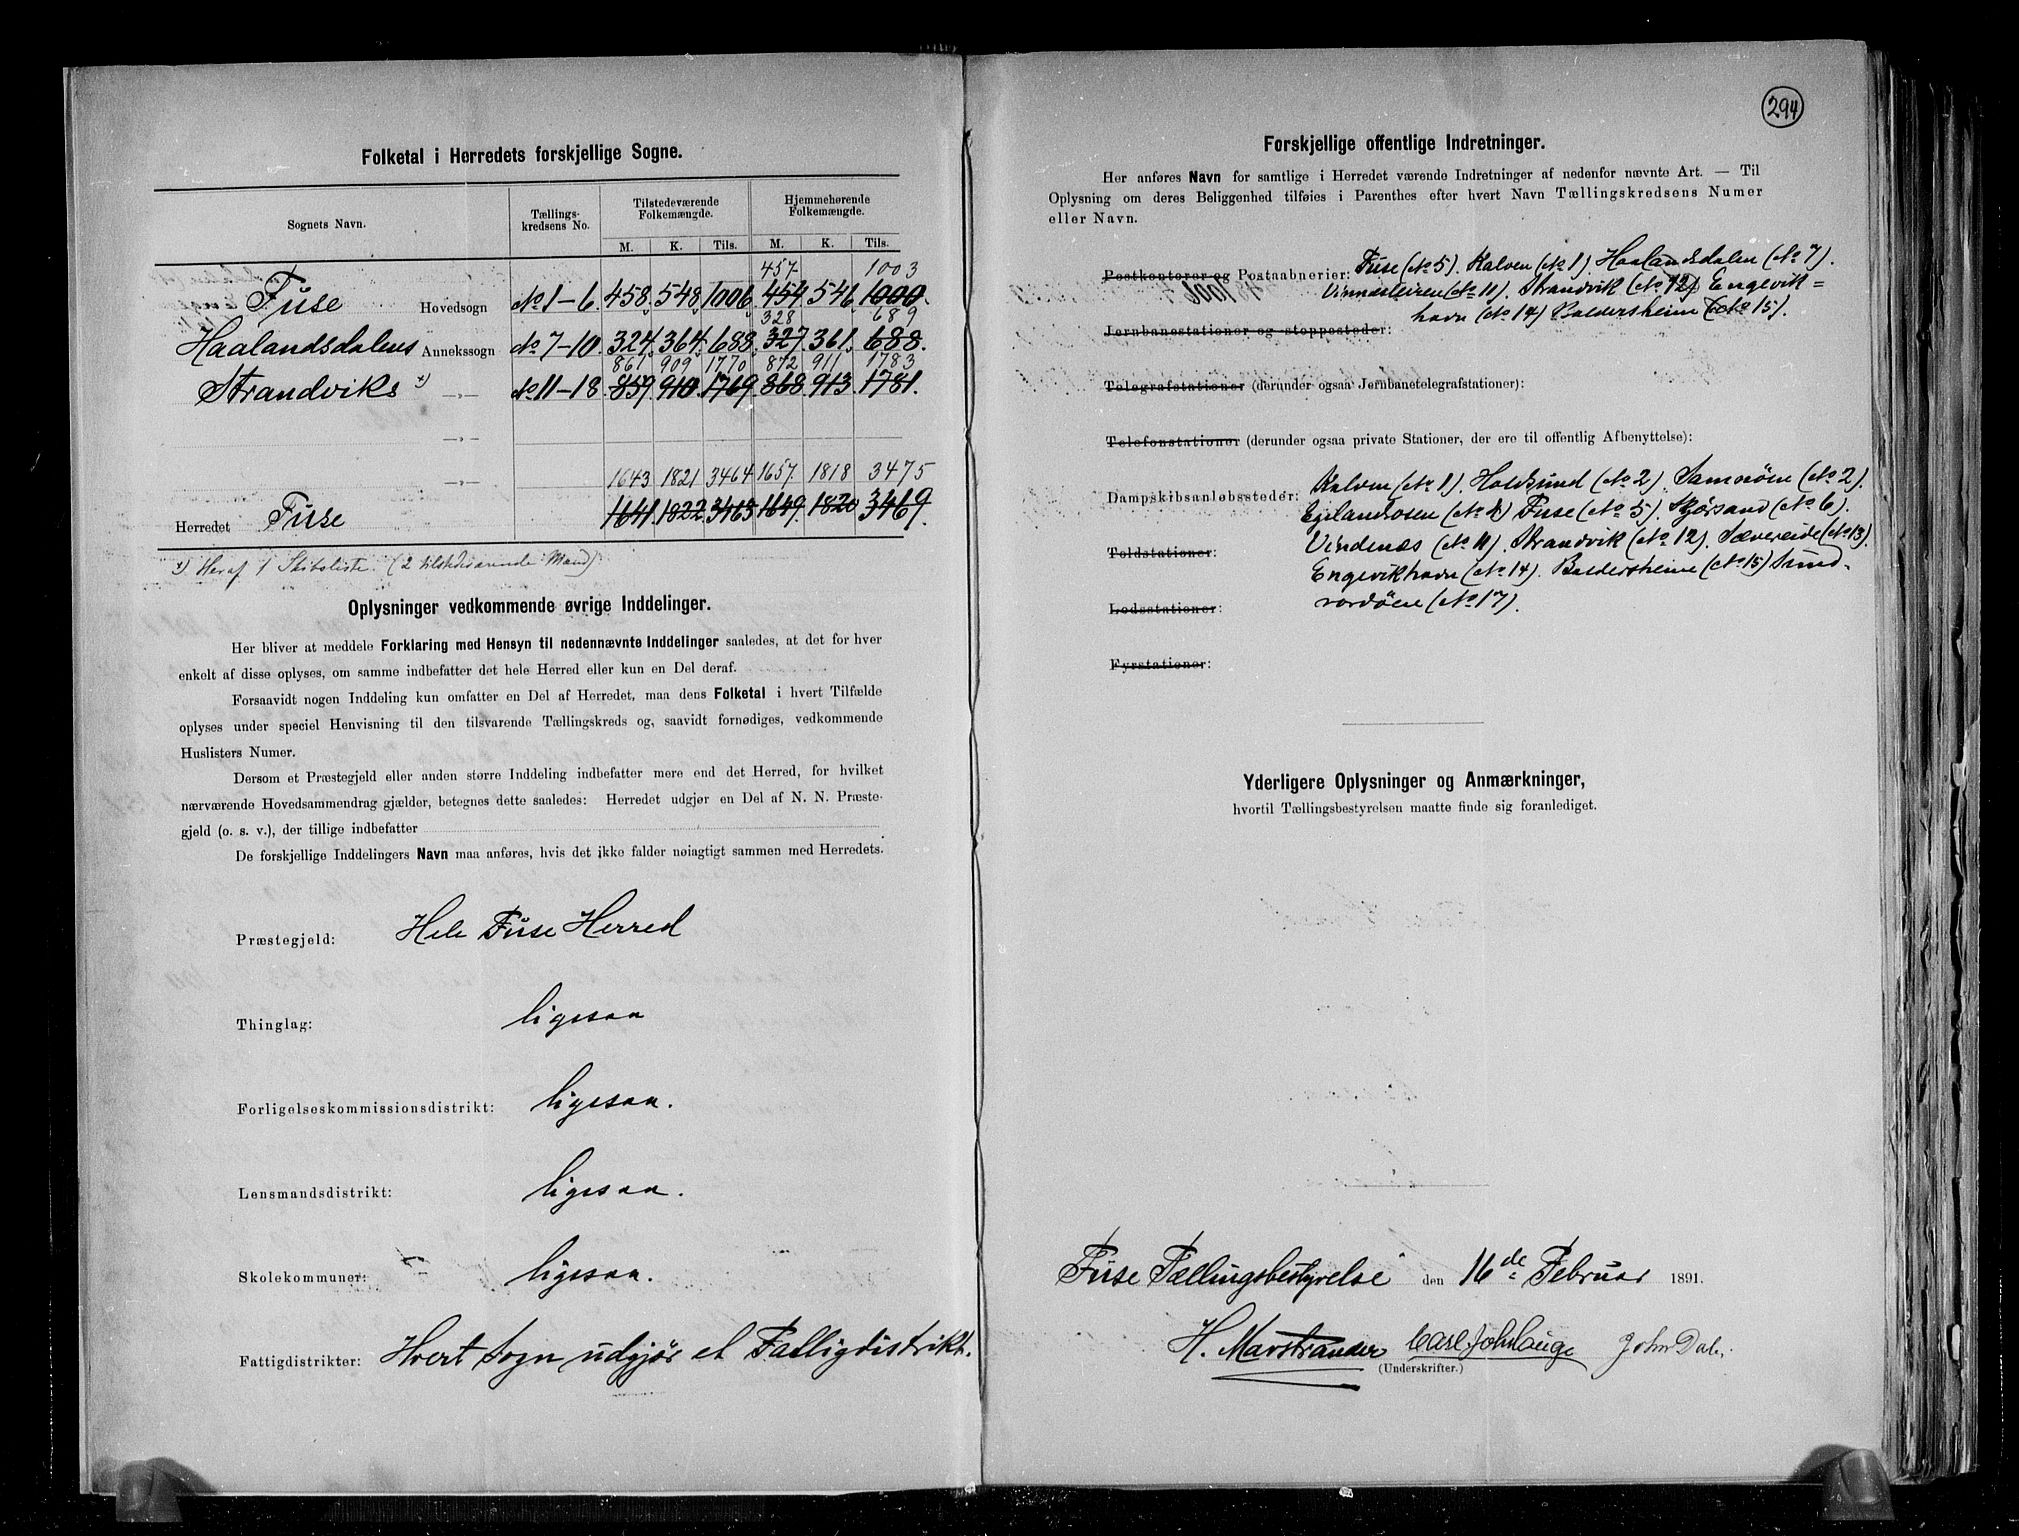 Folketal i Herredets forskjellige Sogne.
Sognets Navn. Tællings- kredsens No. Tilstedeværende Folkemængde. Hjemmehørende Folkemængde.
M. K. Tils. M. K. Tils.
457 1003
Fuse Hovedsogn No 1-6 458 548 1006 454 546 1000.
328 689
Haalandsdalens Annekssogn No 7-10. 324 364 688 327 361 688.
861 909 1770 872 911 1783
Strandviks x) —„— No 11-18 859 910 1769 868 913 1781.
—„—
1643 1821 3464 1657 1818 3475
Herredet Fuse 1641 1822 3463 1649 1820 3469.
x) Heraf 1 Skibsliste. (2 tilstedeværende Mænd).
Oplysninger vedkommende øvrige Inddelinger.
Her bliver at meddele Forklaring med Hensyn til nedennævnte Inddelinger saaledes, at det for hver
enkelt af disse oplyses, om samme indbefatter det hele Herred eller kun en Del deraf.
Forsaavidt nogen Inddeling kun omfatter en Del af Herredet, maa dens Folketal i hvert Tilfælde
oplyses under speciel Henvisning til den tilsvarende Tællingskreds og, saavidt fornødiges, vedkommende
Huslisters Numer.
Dersom et Præstegjeld eller anden større Inddeling indbefatter mere end det Herred, for hvilket
nærværende Hovedsammendrag gjælder, betegnes dette saaledes: Herredet udgjør en Del af N. N. Præste-
gjeld (o. s. v.), der tillige indbefatter
De forskjellige Inddelingers Navn maa anføres, hvis det ikke falder nøiagtigt sammen med Herredets.
Præstegjeld: Hele Fuse Herred
Thinglag: ligesaa
Forligelseskommissionsdistrikt: ligesaa.
Lensmandsdistrikt: ligesaa.
Skolekommuner: ligesaa.
Fattigdistrikter: Hvert Sogn udgjør et Fattigdistrikt.
294
Forskjellige offentlige Indretninger.
Her anføres Navn for samtlige i Herredet værende Indretninger af nedenfor nævnte Art. — Til
Oplysning om deres Beliggenhed tilføies i Parenthes efter hvert Navn Tællingskredsens Numer
eller Navn.
Postkontorer og Postaabnerier: Fuse (No 5). Kalven (No 1). Haalandsdalen (No 7).
Vinnesleiren (No 11). Strandvik (No 12) Engevik=
havn (No 14) Baldersheim (No 15).
Jernbanestationer og stoppesteder:
Telegrafstationer (derunder ogsaa Jernbanetelegrafstationer):
Telefonstationer (derunder ogsaa private Stationer, der ere til offentlig Afbenyttelse):
Dampskibsanløbssteder: Kalven (No 1). Holdsund (No 2). Samnøen (No 2).
Egelandsosen (No 4) Fuse (No 5). Skjørsand (No 6).
Toldstationer: Vindenæs (No 11). Strandvik (No 12). Sævereide (No 13).
Engevikhavn (No 14). Baldersheim (No 15) Sund-
Lodsstationer: vordøen (No 17).
Fyrstationer:
Yderligere Oplysninger og Anmærkninger,
hvortil Tællingsbestyrelsen maatte finde sig foranlediget.
Fuse Tællingsbestyrelse den 16de Februar 1891.
H. Marstrander Carl Joh. Hauge John Dale.
(Underskrifter.)